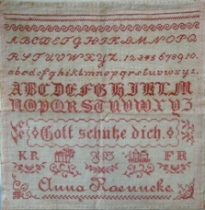 ABCDEFGHIJKLMNOPQ
RSTUVWXYZ. 12345678910.
abcdefghijklmnopqrstuvwxyz.
ABCDEFGHIKLM
NOPQRSTUVWXYZ
Gott schütze dich.
K R F R
Anna Roennecke.